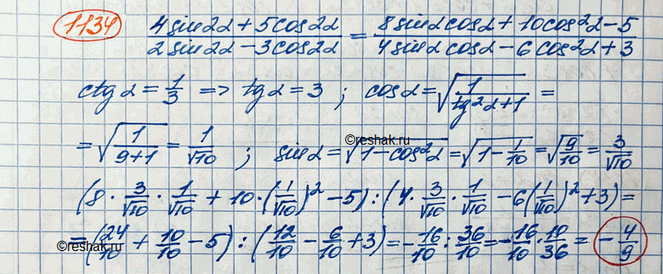 1134 (4 sin2α + 5 cos2α)/(2 sin2α − 3 cos2α) = (8 sinα cosα + 10 cos²α − 5)/(4 sinα cosα − 6 cos²α + 3)
ctg α = 1/3 => tg α = 3 ; cos α = √(1/(tg²α + 1)) =
©reshak.ru
= √(1/(9+1)) = 1/√10 ; sin α = √(1 − cos²α) = √(1 − 1/10) = √(9/10) = 3/√10
(8 · 3/√10 · 1/√10 + 10 · (1/√10)² − 5) : (4 · 3/√10 · 1/√10 − 6(1/√10)² + 3) =
= (24/10 + 10/10 − 5) : (12/10 − 6/10 + 3) = −16/10 : 36/10 = −16/10 · 10/36 = −4/9
©reshak.ru